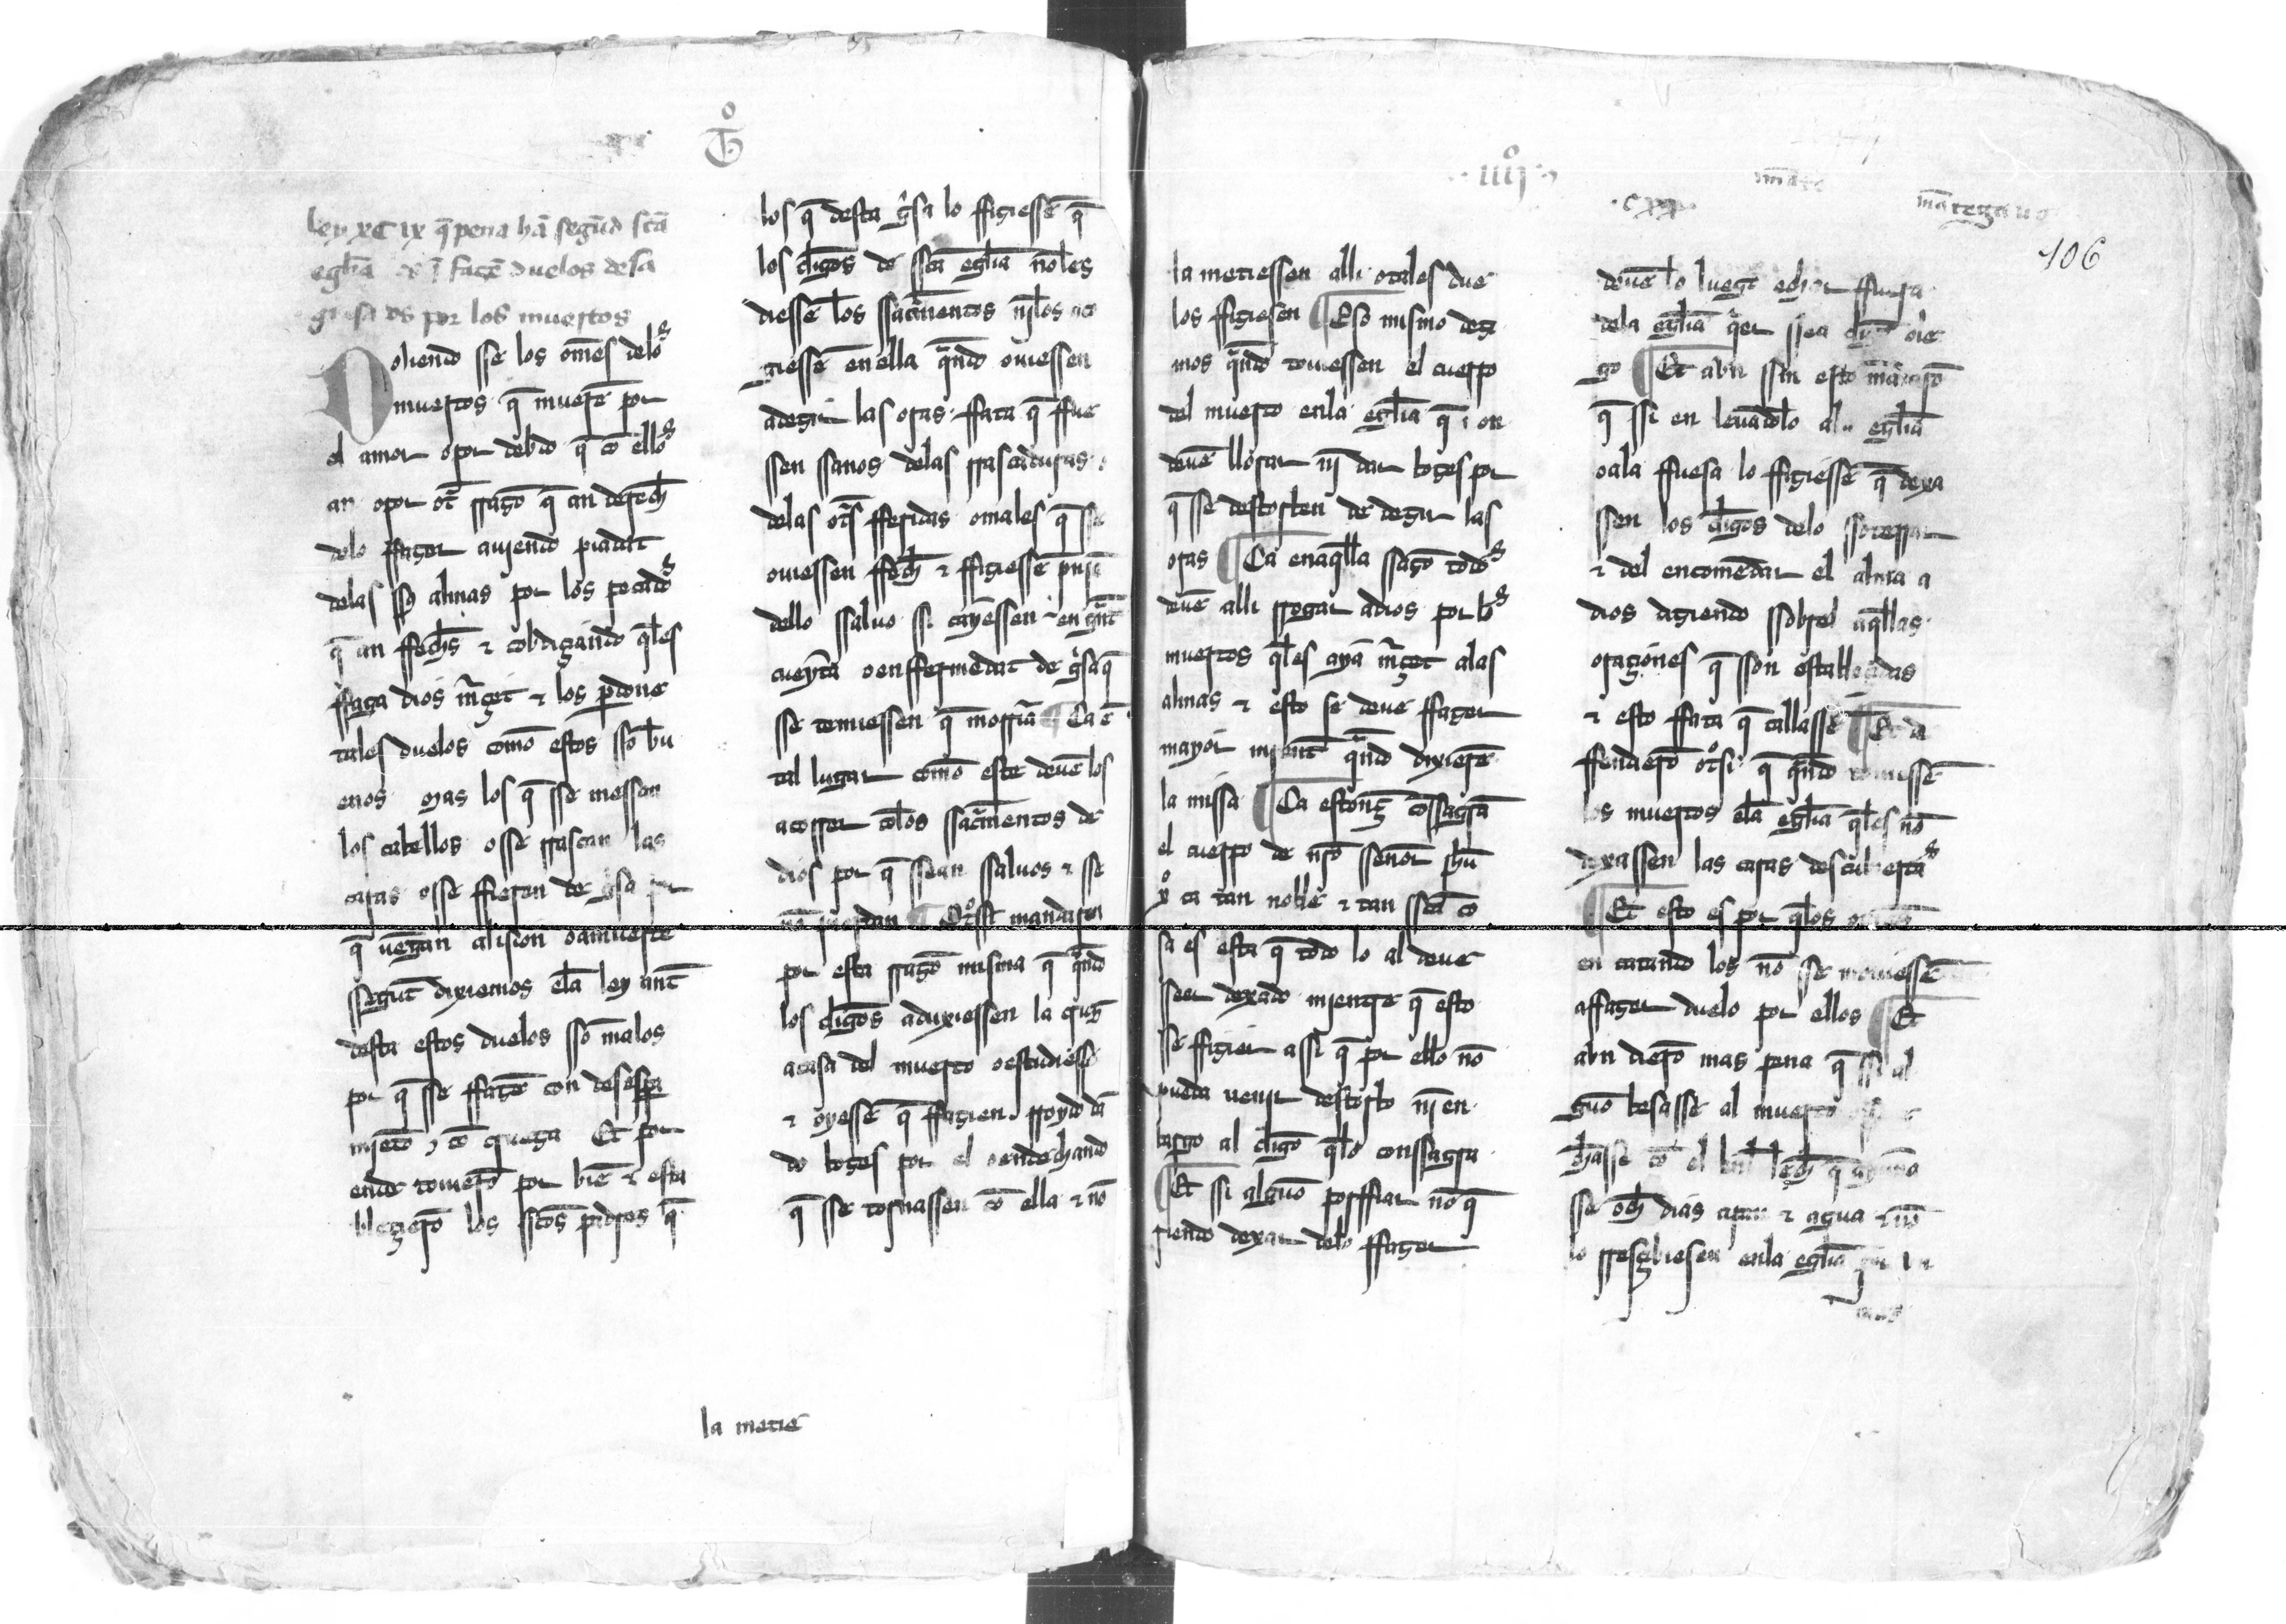 T̊
ley xc ix q̃ pena hã segũd scã
eglia façẽ duelos desa
gisados por los muertos
Doliendo sse los omẽs delos
muertos q̃ muerẽ por
el amor o por debdo q̃ cõ ellos
an o por otr̃ rrazõ q̃ an derech̃
delo ffazer auiendo piadat
delas ss̃ almas por los pecados
q̃ an ffech̃s ⁊ cobdiçiando q̃les
ffaga dios mr̃çet ⁊ los ꝑdone
tales duelos commo estos ssõ bu
enos mas los q̃ sse messan
los cabellos o sse rrascan las
caras o sse ffieren de gisa
q̃ uengan a lision o a muerte
ssegũt dixiemos ẽla ley ant̃
desta estos duelos ssõ malos
por q̃ sse ffazẽ con desespa
mjẽto ⁊ cõ Et por
ende touierõ por biẽ ⁊ esta
bleçierõ los sc̃os padres q̃
los q̃ desta gisa lo ffiziessẽ q̃
los cligos de scã eglia nõ les
diessẽ los ssacramentos njlos aco
giessẽ en ella q̃ndo ouiessen
a dezir las oras ffata q̃ ffue
ssen sanos delas rrascaduras
delas otr̃s fferidas o males q̃ sse
ouiessen ffech̃ ⁊ ffiziessẽ
dello ssaluo si cayessen en grãt
cueyta o enffermedat de gisa q̃
sse temiessen q̃ morriã Ca ẽ
tal lugar commo este deuẽ los
acorrer cõlos ssacramentos de
dios por q̃ ssean ssaluos ⁊ sse
nõ pierdan Otrossi mandaron
por esta rrazõ misma q̃ q̃ndo
los cligos aduxiessen la cruz
a casa del muerto o estudiess
⁊ oyessẽ q̃ ffazien rroydo dã
do bozes por el o endechando
q̃ sse tornassen cõ ella ⁊ nõ
la metie
iiij̊
cxx
106
la metiessen alli o tales due
los ffiziesen Eso mismo dezi
mos q̃ndo touiessen el cuerpo
del muerto enla eglia q̃ i on
deuẽ llorar nj dar bozes por
q̃ sse destoruen de dezir las
oras Ca enaq̃lla ssazõ todos
deuẽ alli rrogar a dios por los
muertos q̃les aya mr̃çet alas
almas ⁊ esto se deue ffazer
mayor mjent q̃ndo dixierẽ
la missa Ca estonç cõssagrã
el cuerpo de nr̃o sennor ihũ
xo ca tan noble ⁊ tan scã co
sa es esta q̃ todo lo al deue
sser dexado mjentre q̃ esto
sse ffizier assi q̃ por ello nõ
pueda uenir destoruo nj en
bargo al cligo q̃lo conssagra
Et si alguno porffiar nõ q̃
riendo dexar delo ffazer
deuẽ lo luego echar ffuera
dela eglia q̃er ssea cligo o le
go Et abn sin esto mãdarõ
q̃ ssi en leuãdolo ala eglia
o ala ffuesa lo ffiziessẽ q̃ dexa
ssen los cligos delo ssoterrar
⁊ del encomẽdar el alma a
dios diziendo ssobrel aq̃llas
oraçiones q̃ sson establleçidas
⁊ esto ffata q̃ callassẽ Et de
ffendierõ otrosi q̃ q̃ndo touiessẽ
los muertos ẽla eglia q̃les nõ
dexassen las caras descubiertas
Et esto es por q̃los omes
en catando los nõ sse mouiessẽ
a ffazer duelo por ellos Et
abn dierõ mas pena q̃ ssi al
guno besasse al muerto
chasse cõ el lech̃ q̃ ayuna
sse och̃ dias a pan ⁊ agua ⁊ nõ
lo rresçibiesen enla eglia por vn